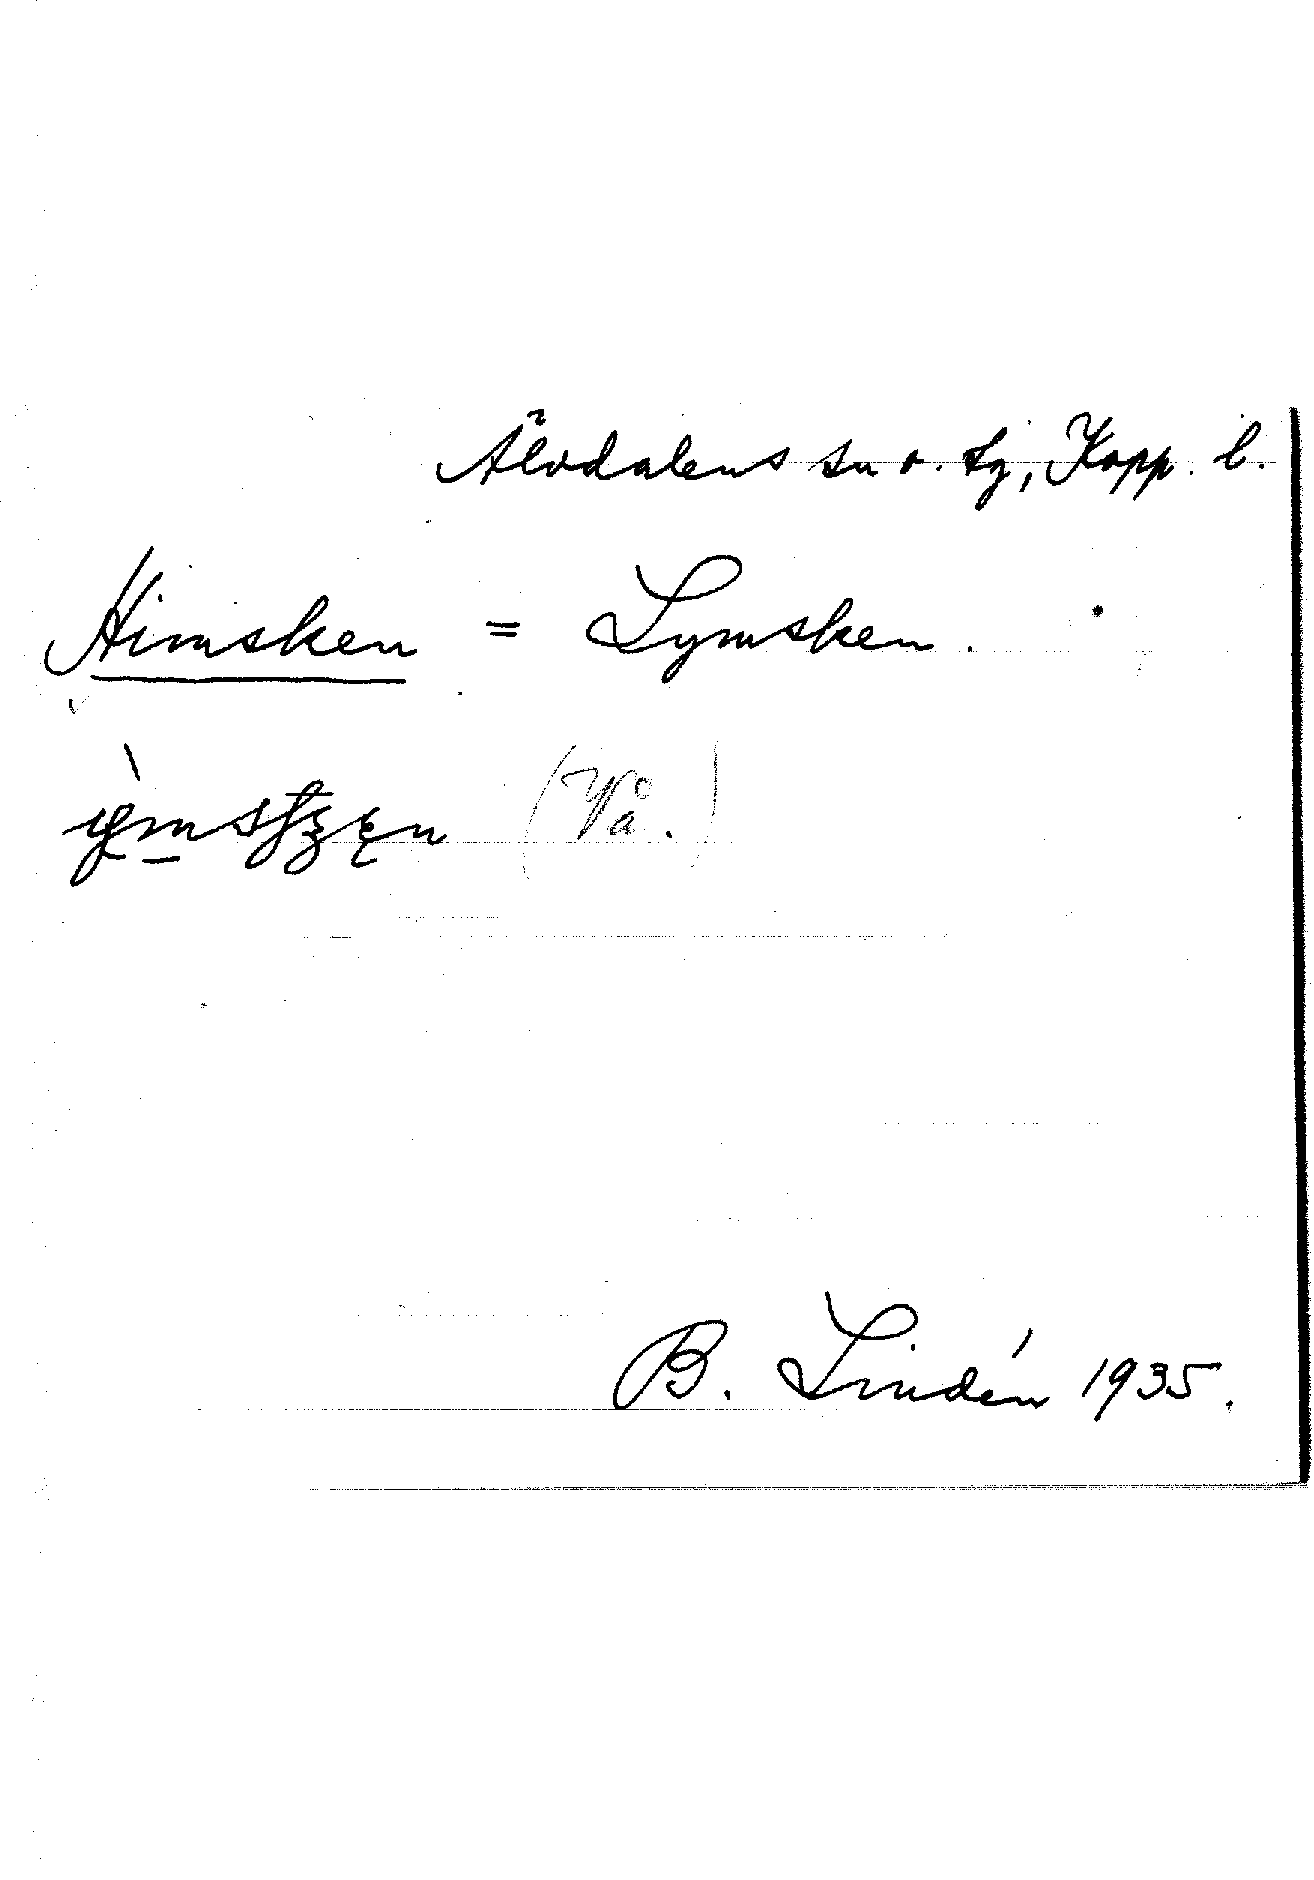 Älvdalens sn o. tg, Kopp. l.
Himsken = Lymsken.
(Yå.)
B. Lindén 1935.